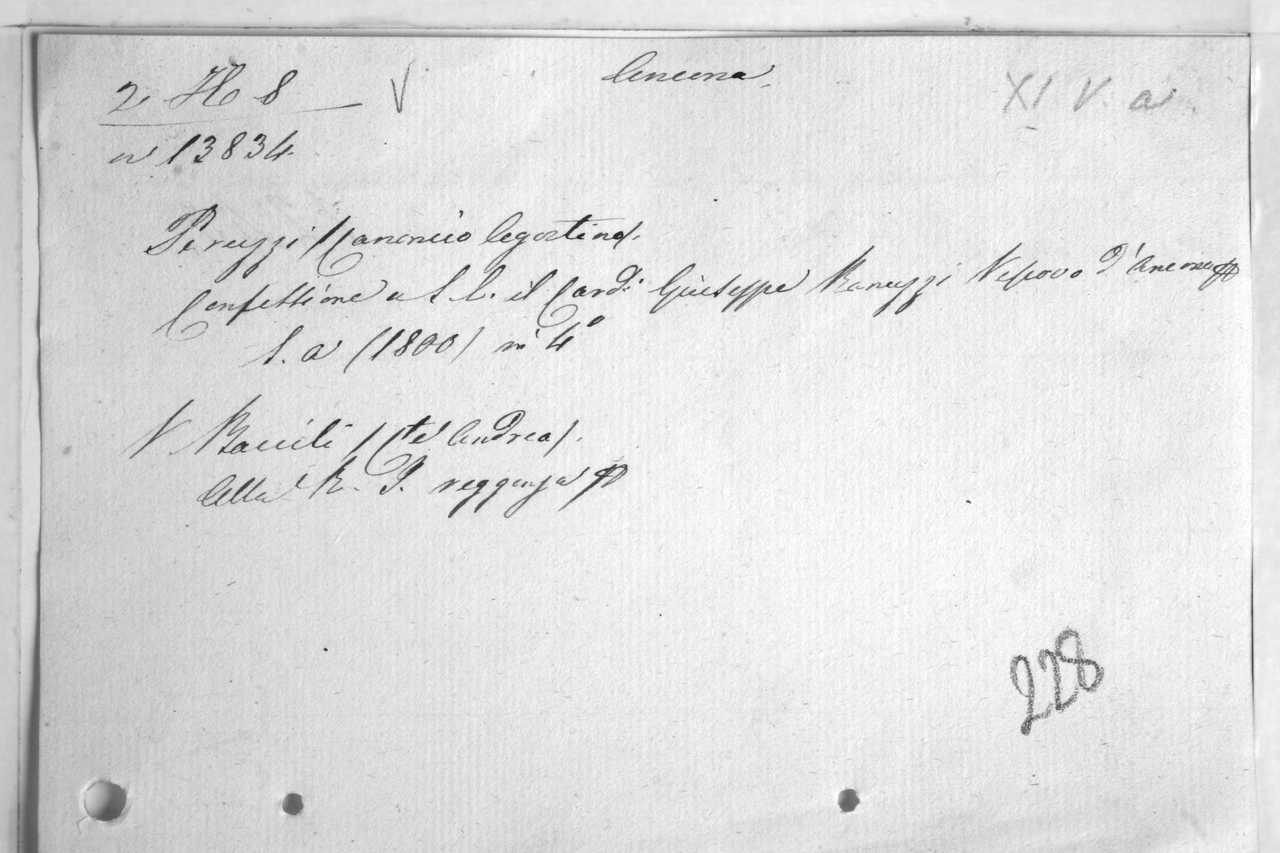 2 H 8 V
Ancona
XI. V. a.
n° 13834.
Peruzzi (Canonico Agostino).
Confessione a S. E. il Card. Giuseppe Ranuzzi Vescovo d'Ancona
S. a (1800) in 4°
V Bacili (Cte Andrea).
Alla R. I. reggenza
228